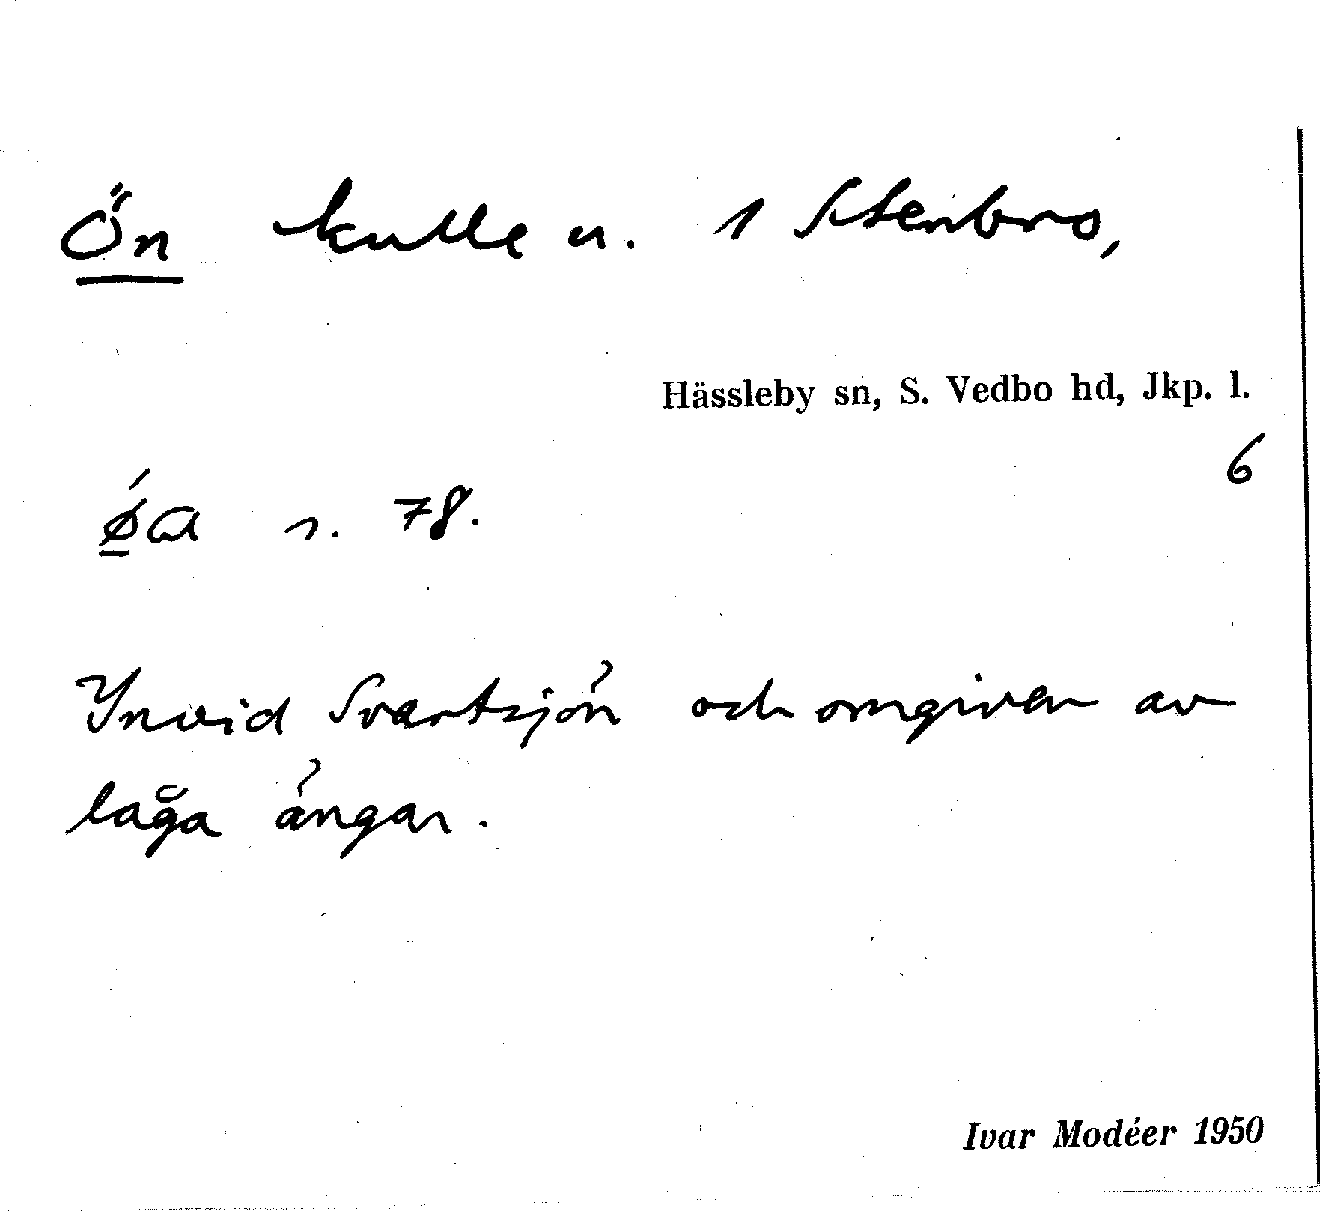 Ön kulle n. 1 Stenbro,
Hässleby sn, S. Vedbo hd, Jkp. l.
6
s. 78.
Invid Svartsjön och omgiven av
låga ängar.
Ivar Modéer 1950